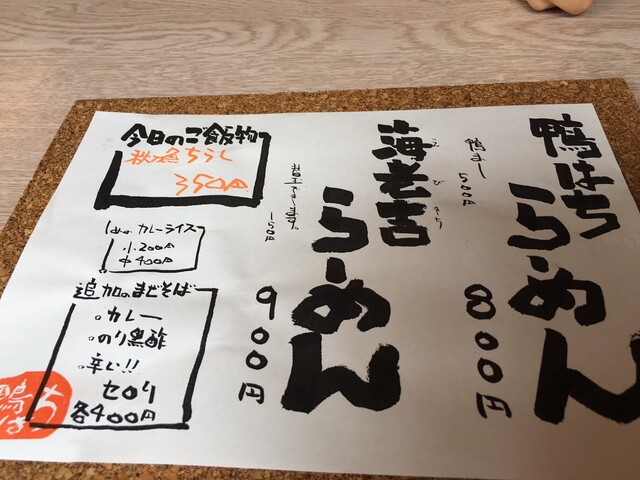 鴨はち
らーめん
鴨まし
500円
800円
海老吉
えびきち
らーめん
替玉できます。
150円
900円
今日のご飯物
秋魚ちらし
350円
カレーライス
小200円
中400円
追加のまどそば
。カレー
。のり黒酢
。辛い!!
セロリ
各400円
鴨はち